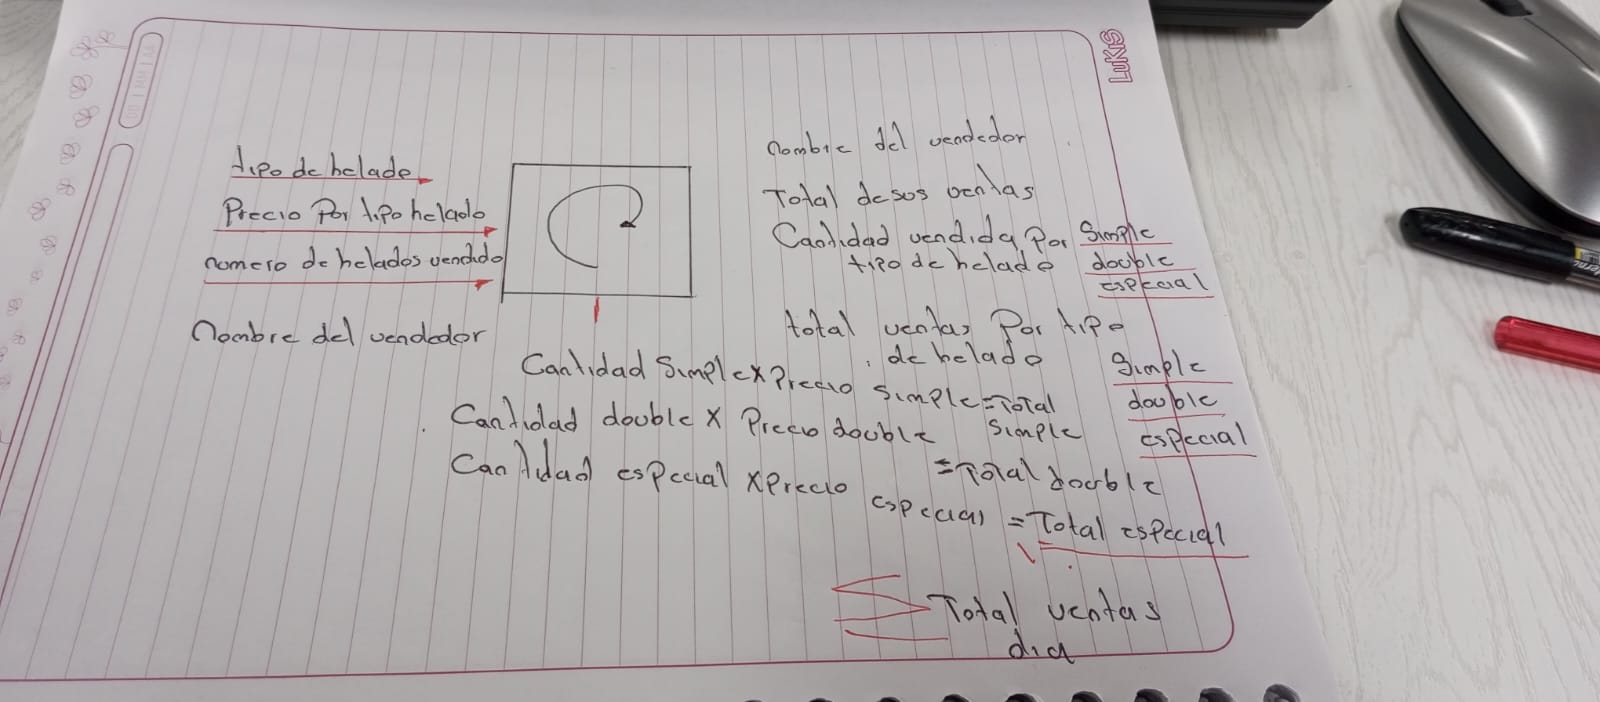 LUKIS
DD | MM | AA
tipo de helado
Precio Por tipo helado
numero de helados vendido
Nombre del vendedor
nombre del vendedor
Total de sus ventas
Cantidad vendida Por Simple
tipo de helado double
especial
total ventas Por tipo
de helado Simple
double
especial
Cantidad Simple x Precio Simple = Total
Simple
Cantidad double x Precio double
= Total double
Cantidad especial x Precio
especial = Total especial
Total ventas
dia